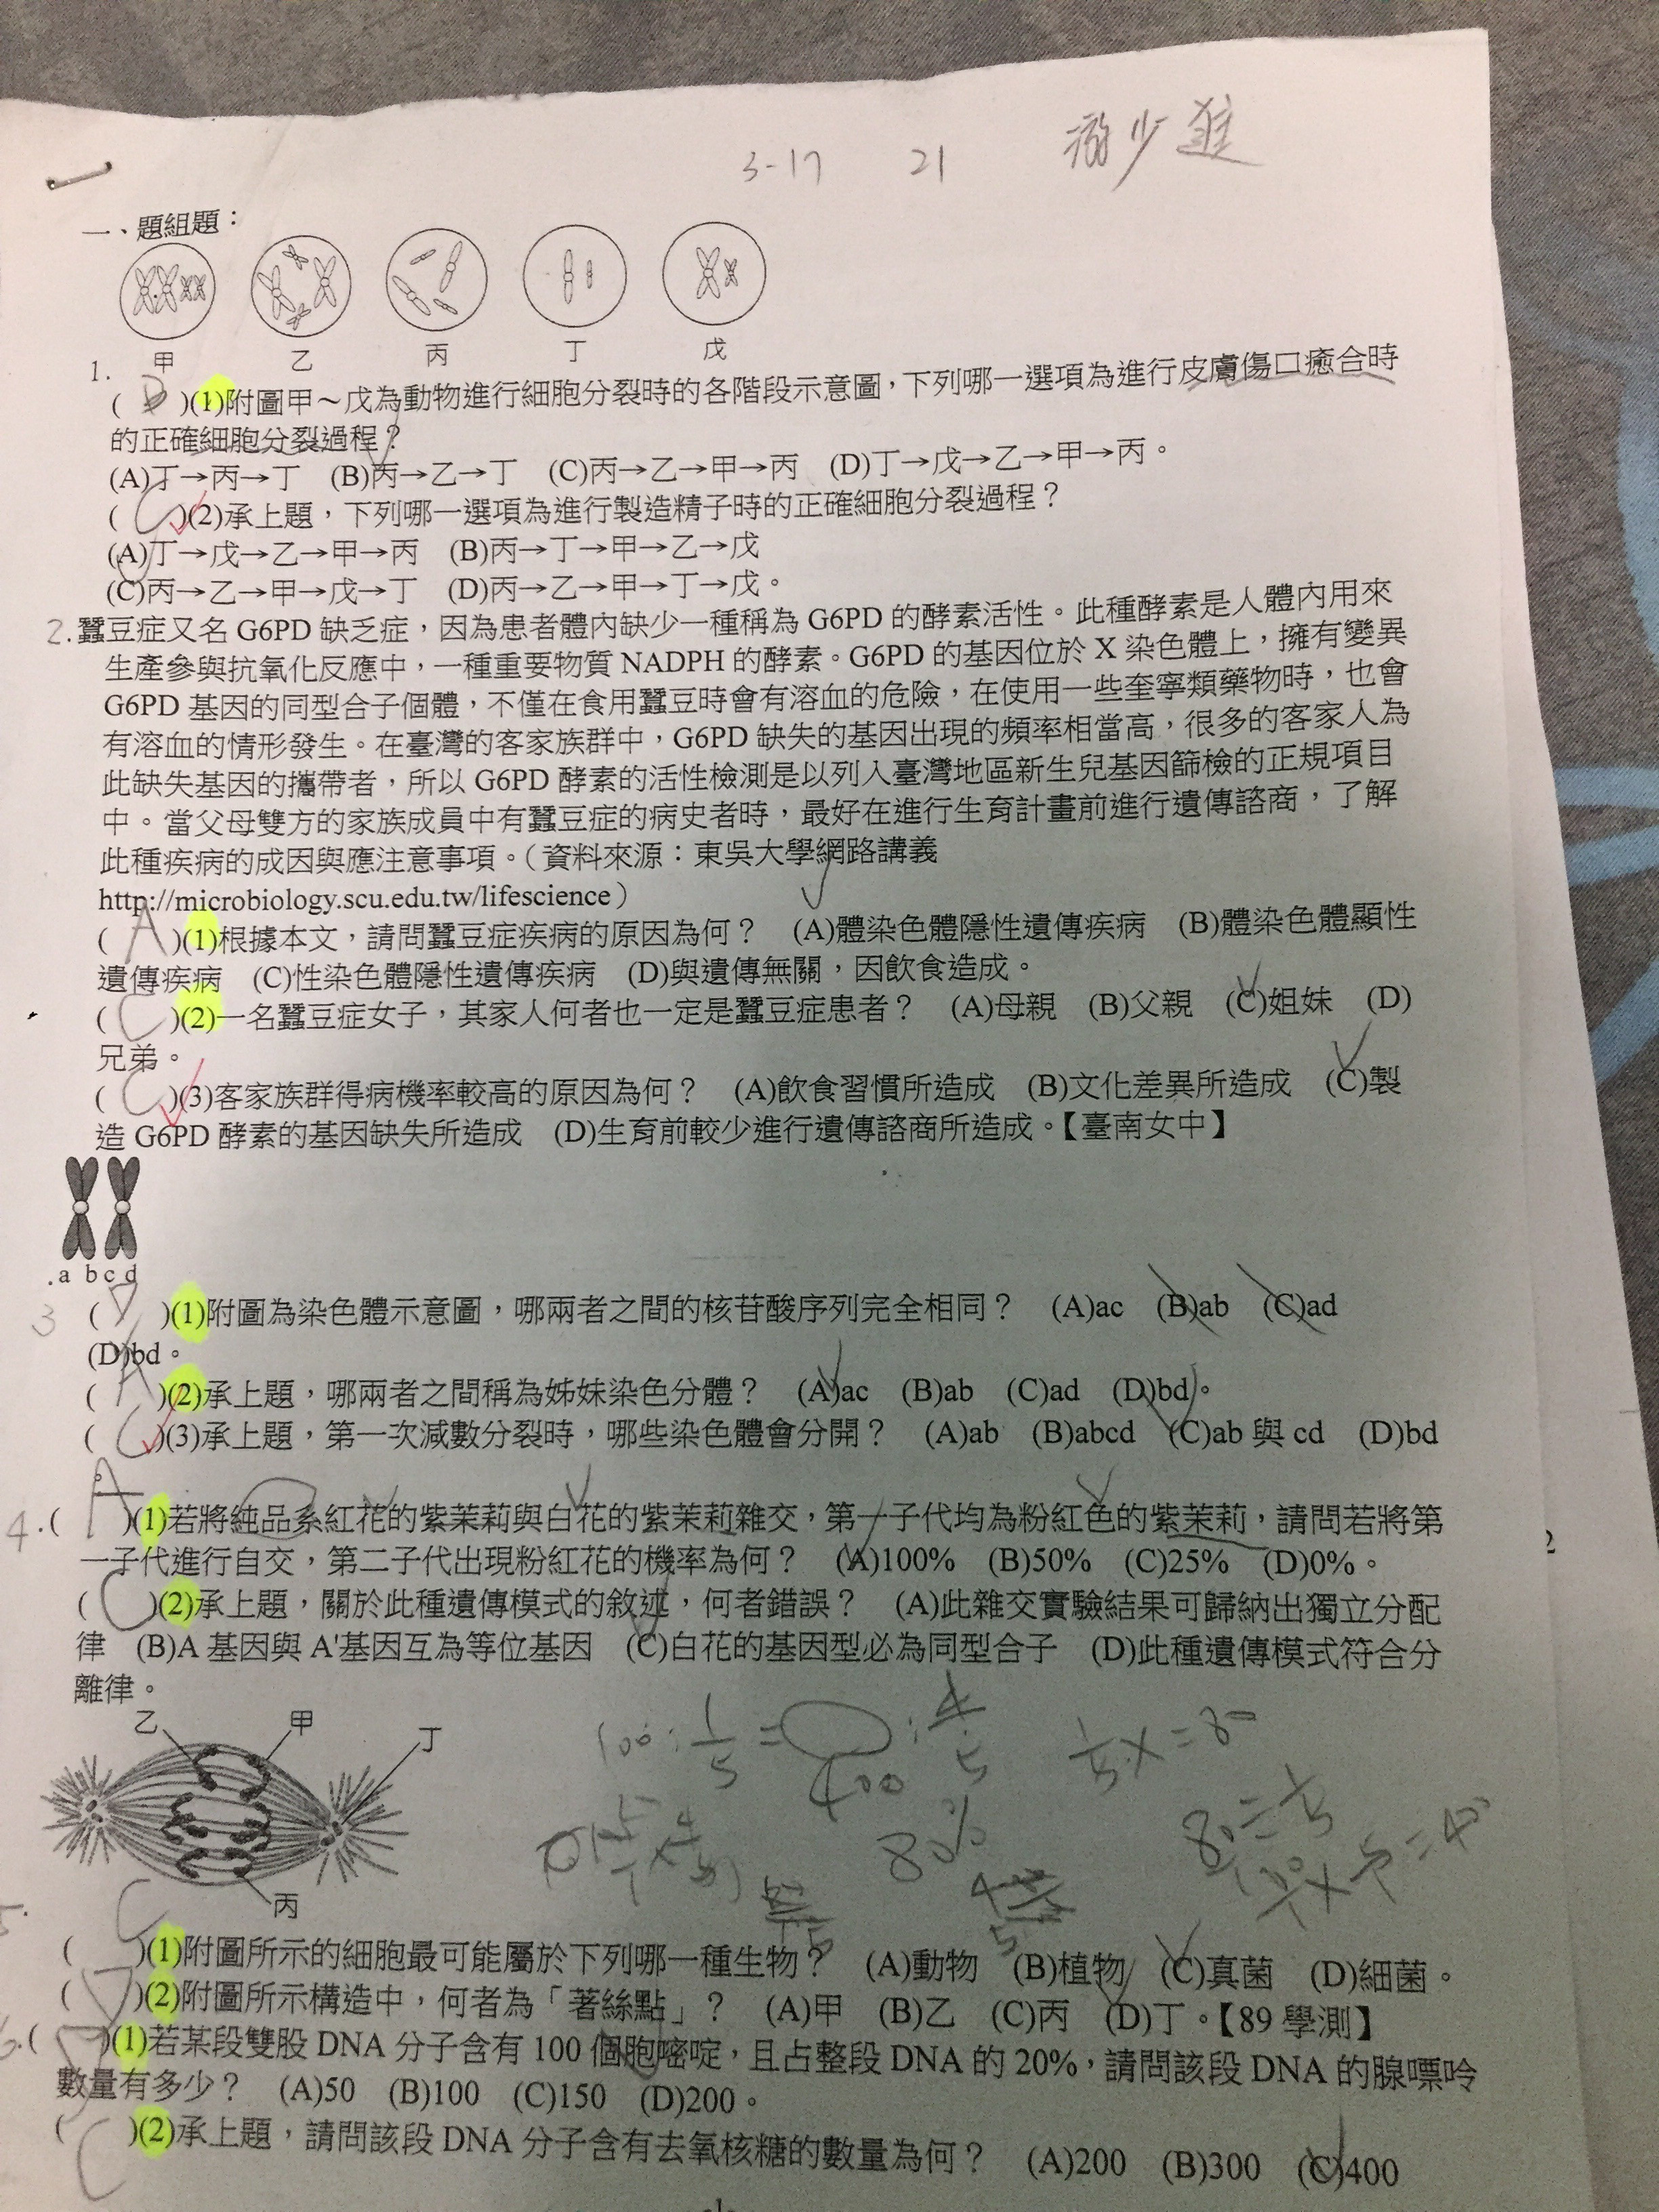 3-17 21
一、題組題：
甲 乙 丙 丁 戊
1.
( D )(1)附圖甲～戊為動物進行細胞分裂時的各階段示意圖，下列哪一選項為進行皮膚傷口癒合時
的正確細胞分裂過程？
(A)丁→丙→丁 (B)丙→乙→丁 (C)丙→乙→甲→丙 (D)丁→戊→乙→甲→丙。
( C )(2)承上題，下列哪一選項為進行製造精子時的正確細胞分裂過程？
(A)丁→戊→乙→甲→丙 (B)丙→丁→甲→乙→戊
(C)丙→乙→甲→戊→丁 (D)丙→乙→甲→丁→戊。
2.蠶豆症又名 G6PD 缺乏症，因為患者體內缺少一種稱為 G6PD 的酵素活性。此種酵素是人體內用來
生產參與抗氧化反應中，一種重要物質 NADPH 的酵素。G6PD 的基因位於 X 染色體上，擁有變異
G6PD 基因的同型合子個體，不僅在食用蠶豆時會有溶血的危險，在使用一些奎寧類藥物時，也會
有溶血的情形發生。在臺灣的客家族群中，G6PD 缺失的基因出現的頻率相當高，很多的客家人為
此缺失基因的攜帶者，所以 G6PD 酵素的活性檢測是以列入臺灣地區新生兒基因篩檢的正規項目
中。當父母雙方的家族成員中有蠶豆症的病史者時，最好在進行生育計畫前進行遺傳諮商，了解
此種疾病的成因與應注意事項。（資料來源：東吳大學網路講義
http://microbiology.scu.edu.tw/lifescience）
( A )(1)根據本文，請問蠶豆症疾病的原因為何？ (A)體染色體隱性遺傳疾病 (B)體染色體顯性
遺傳疾病 (C)性染色體隱性遺傳疾病 (D)與遺傳無關，因飲食造成。
( C )(2)一名蠶豆症女子，其家人何者也一定是蠶豆症患者？ (A)母親 (B)父親 (C)姐妹 (D)
兄弟。
( C )(3)客家族群得病機率較高的原因為何？ (A)飲食習慣所造成 (B)文化差異所造成 (C)製
造 G6PD 酵素的基因缺失所造成 (D)生育前較少進行遺傳諮商所造成。【臺南女中】
a b c d
3 ( D )(1)附圖為染色體示意圖，哪兩者之間的核苷酸序列完全相同？ (A)ac (B)ab (C)ad
(D)bd。
( A )(2)承上題，哪兩者之間稱為姊妹染色分體？ (A)ac (B)ab (C)ad (D)bd。
( C )(3)承上題，第一次減數分裂時，哪些染色體會分開？ (A)ab (B)abcd (C)ab 與 cd (D)bd
。
4.( A )(1)若將純品系紅花的紫茉莉與白花的紫茉莉雜交，第一子代均為粉紅色的紫茉莉，請問若將第
一子代進行自交，第二子代出現粉紅花的機率為何？ (A)100% (B)50% (C)25% (D)0%。
( C )(2)承上題，關於此種遺傳模式的敘述，何者錯誤？ (A)此雜交實驗結果可歸納出獨立分配
律 (B)A 基因與 A'基因互為等位基因 (C)白花的基因型必為同型合子 (D)此種遺傳模式符合分
離律。
乙 甲 丁
丙
100 : 1/5 = 400 : 4/5
1/5 x = 80
80%
5.
( C )(1)附圖所示的細胞最可能屬於下列哪一種生物？ (A)動物 (B)植物 (C)真菌 (D)細菌。
( D )(2)附圖所示構造中，何者為「著絲點」？ (A)甲 (B)乙 (C)丙 (D)丁。【89 學測】
6.( D )(1)若某段雙股 DNA 分子含有 100 個胞嘧啶，且占整段 DNA 的 20%，請問該段 DNA 的腺嘌呤
數量有多少？ (A)50 (B)100 (C)150 (D)200。
( C )(2)承上題，請問該段 DNA 分子含有去氧核糖的數量為何？ (A)200 (B)300 (C)400
2